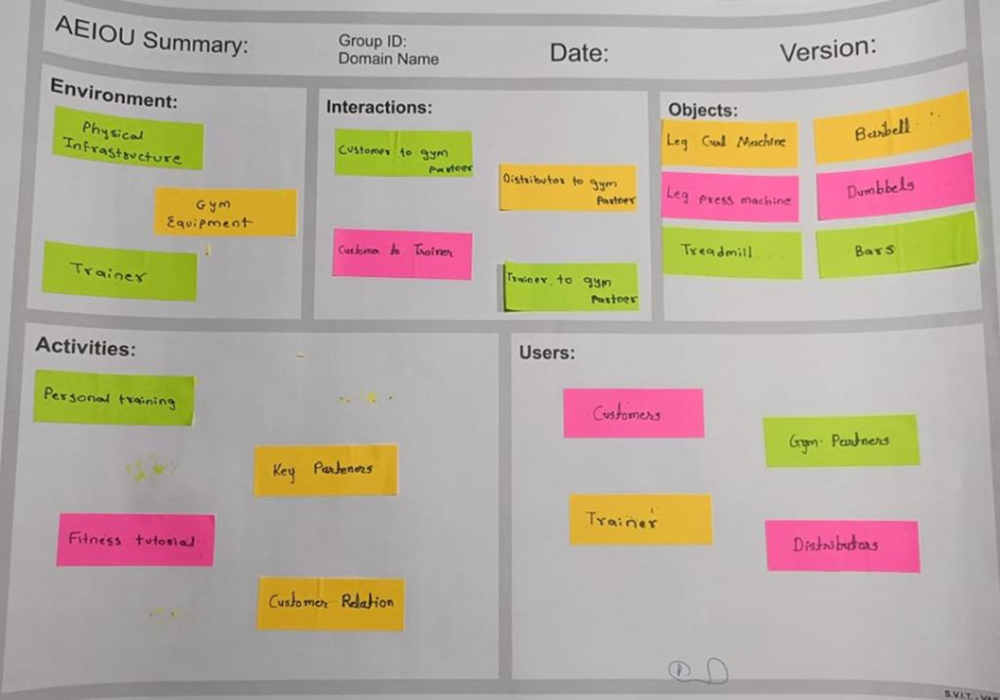 AEIOU Summary:
Group ID:
Domain Name
Date:
Version:
Environment:
Physical
Infrastructure
Gym
Equipment
Trainer
Interactions:
Customer to gym
Partner
Distributor to gym
Partner
Customer to Trainer
Trainer to gym
Partner
Objects:
Leg Curl Machine
Barbell
Leg press machine
Dumbbels
Treadmill
Bars
Activities:
Personal training
Key Parteners
Fitness tutorial
Customer Relation
Users:
Customers
Gym Partners
Trainer
Distributors
S.V.I.T. -